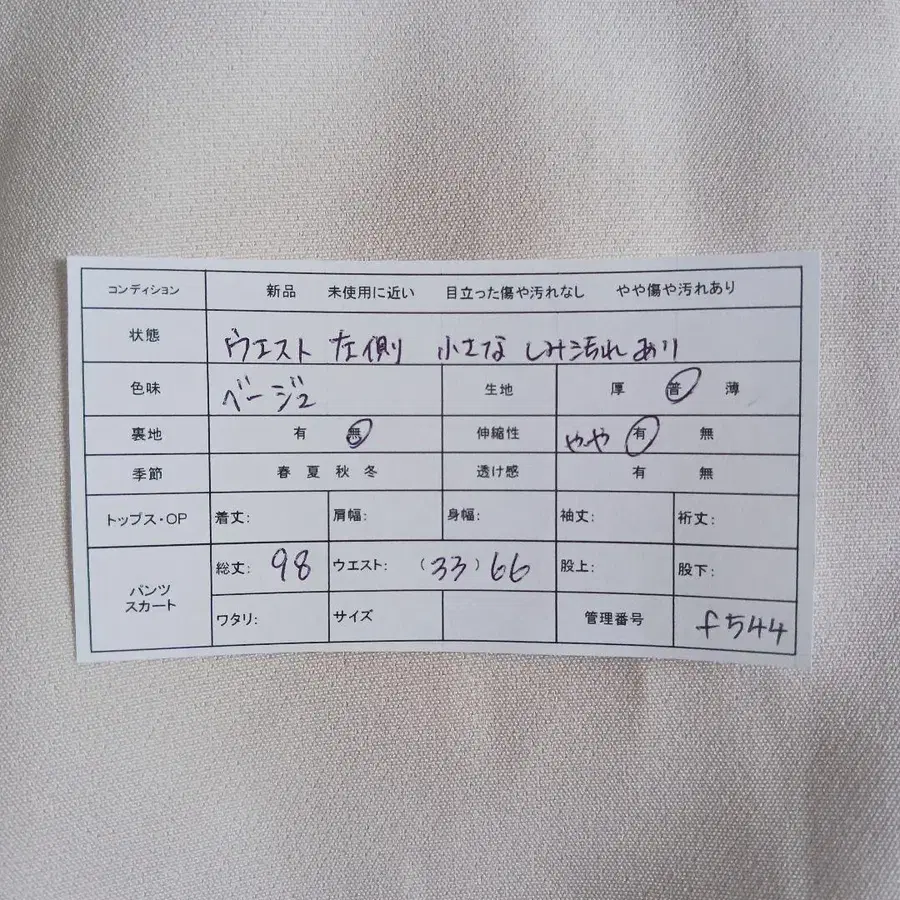 コンディション 新品 未使用に近い 目立った傷や汚れなし やや傷や汚れあり
状態 ウエスト 左側 小さな しみ汚れ あり
色味 ベージュ 生地 厚 普 薄
裏地 有 無 伸縮性 やや 有 無
季節 春 夏 秋 冬 透け感 有 無
トップス・OP 着丈: 肩幅: 身幅: 袖丈: 裄丈:
パンツ スカート 総丈: 98 ウエスト: (33) 66 股上: 股下:
ワタリ: サイズ 管理番号 f544